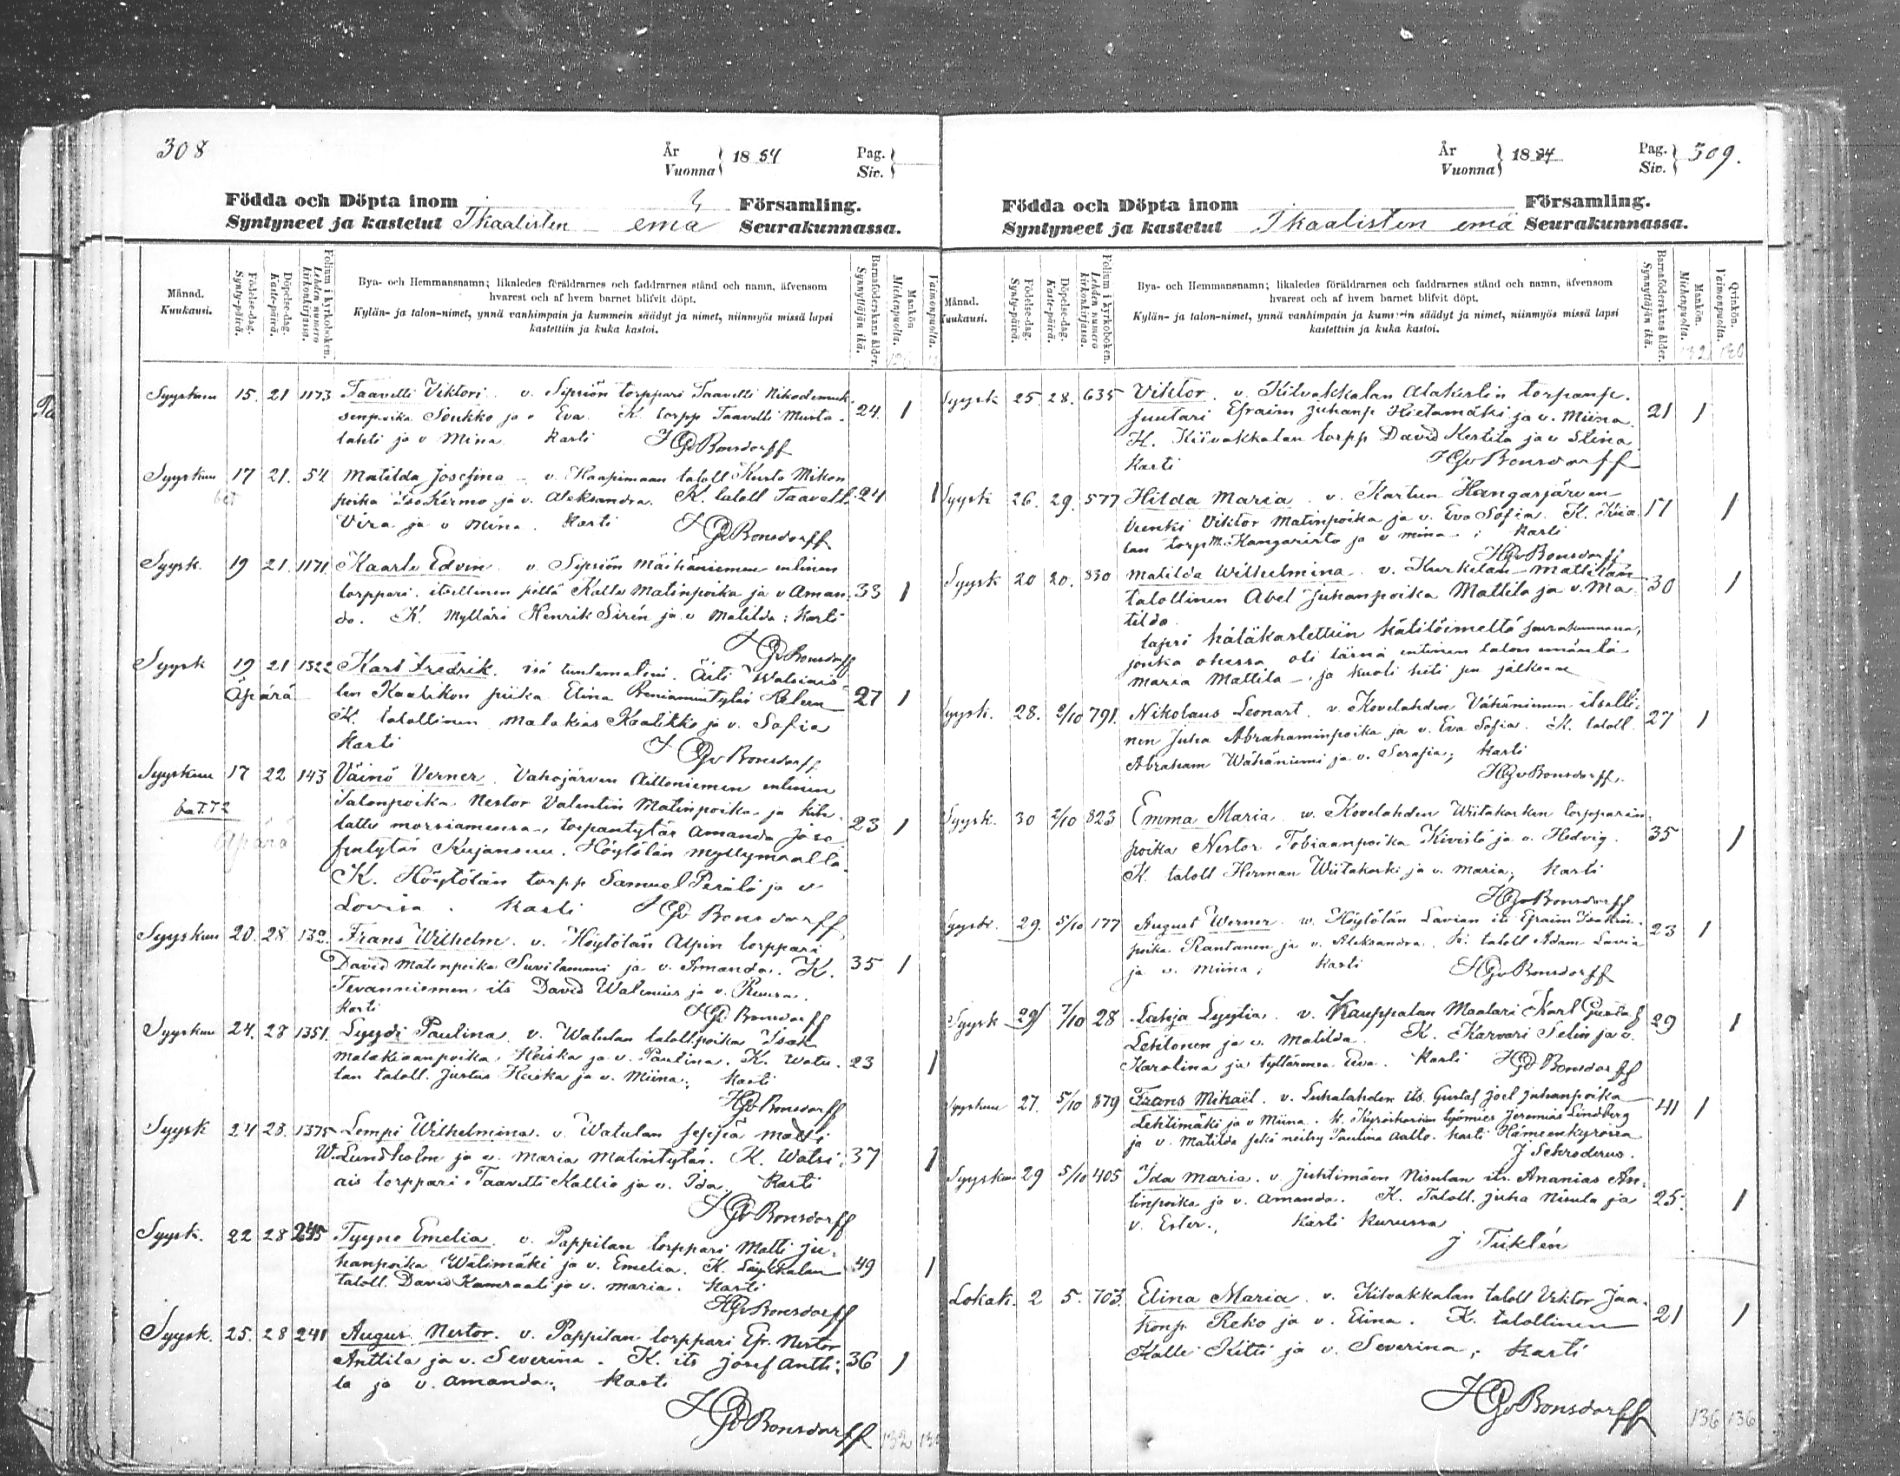 308
År Vuonna } 1884 Pag. Siv. }
Födda och Döpta inom Församling.
Syntyneet ja kastetut Ikaalisten emä Seurakunnassa.
Månad. Kuukausi.
Födelse-dag. Synty-päivä.
Döpelse-dag. Kaste-päivä.
Folium i kyrkoboken. Lehden numero kirkonkirjassa.
Bya- och Hemmansnamn; likaledes föräldrarnes och faddrarnes stånd och namn, äfvensom
hvarest och af hvem barnet blifvit döpt.
Kylän- ja talon-nimet, ynnä vanhimpain ja kummein säädyt ja nimet, niinmyös missä lapsi
kastettiin ja kuka kastoi.
Barnaföderskans ålder. Synnyttäjän ikä.
Mankön Miehenpuolta.
Vaimonpuolta.
Syyskuu 15. 21 1173 Taavetti Viktori. v. Sipsiön torppari Taavetti Nikodemuk-
senpoika Soukko ja v Eva. K. torpp Taavetti Musta- 24. 1
lahti ja v Mina. kasti HGvBonsdorff
Syyskuu 17 21. 54 Matilda Josefina v. Haapimaan taloll Kusto Mikon
poika Iso Kirmo ja v. Aleksandra. K. taloll Taavetti 24 1
Vira ja v Mina. kasti HGvBonsdorff
Syysk. 19 21. 1171 Kaarlo Edvin v. Sipsiön Mäihäniemen entinen
torppari, itsellinen Kalle Matinpoika ja v Aman- 33 1
da. K. Mylläri Henrik Sirén ja v Matilda; kasti
HGvBonsdorff
Syysk 19 21 1322 Karl Fredrik. isä tuntematoin. Äiti Vatsiais-
Äpärä ten Kaalikon piika Elina Benjamintytär Helen 27 1
K. talollinen Malakias Kaalikko ja v. Sofia
kasti HGvBonsdorff
Syyskuu 17 22 143 Väinö Verner. Vahojärven Aittoniemen entinen
Talonpoika Nestor Valentin Matinpoika ja kih-
lattu morsiamensa, torpantytär Amanda Jose- 23 1
äpärä
fintytär Kujansuu. Höytölän myllymaalla.
K. Höytölän torpp Samuel Perälä ja v
Lovisa. kasti HGvBonsdorff
Syyskuu 20. 28 132. Frans Wilhelm. v. Höytölän Alpin torppari
David Matinpoika Suvilammi ja v. Amanda. K. 35 1
Tevanniemen its David Walenius ja v. Ruusa.
kasti HGvBonsdorff
Syyskuu 24. 28 1351. Lyydi Paulina. v. Watulan talollpoika Isak
Malakiaanpoika Heiska ja v. Paulina. K. Watu- 23 1
lan taloll. Justus Heiska ja v. Miina; kasti
HGvBonsdorff
Syysk 24 28. 1375 Lempi Wilhelmina. v. Watulan seppä Matti
W. Lundholm ja v. Maria Matintytär. K. Watsi- 37 1
ais torppari Taavetti Kallio ja v. Ida. kasti
HGvBonsdorff
Syysk. 22 28 245 Tyyne Emelia. v. Pappilan torppari Matti Ju-
hanpoika Wälimäki ja v. Emelia. K. Läykkälän 49 1
taloll. David Kamraati ja v. Maria. kasti
HGvBonsdorff
Syysk. 25. 28 241 Augus Nestor. v. Pappilan torppari Efr. Nestor
Anttila ja v. Severina. K. its Josef Antti- 36 1
la ja v. Amanda; kasti
HGvBonsdorff
132
År Vuonna } 1884 Pag. Siv. } 309.
Födda och Döpta inom Församling.
Syntyneet ja kastetut Ikaalisten emä Seurakunnassa.
Månad. Kuukausi.
Födelse-dag. Synty-päivä.
Döpelse-dag. Kaste-päivä.
Folium i kyrkoboken. Lehden numero kirkonkirjassa.
Bya- och Hemmansnamn; likaledes föräldrarnes och faddrarnes stånd och namn, äfvensom
hvarest och af hvem barnet blifvit döpt.
Kylän- ja talon-nimet, ynnä vanhimpain ja kummein säädyt ja nimet, niinmyös missä lapsi
kastettiin ja kuka kastoi.
Barnaföderskans ålder. Synnyttäjän ikä.
Mankön. Miehenpuolta.
Qvinkön. Vaimonpuolta.
132 130
Syysk 25. 28. 635 Viktor. v. Kilvakkalan Alakestin torpanp.
Juutari Efraim Juhanp Hietamäki ja v. Miina 21 1
K. Kilvakkalan torpp David Kestilä ja v Stina
kasti HGvBonsdorff
Syysk 26. 29. 577 Hilda Maria. v. Kartun Hangasjärven
renki Viktor Matinpoika ja v. Eva Sofia. K. 17 1
lan torp M. Kangaristo ja v Mina; kasti
HGvBonsdorff
Syysk 20 20. 830 Matilda Wilhelmina. v. Kurkelan Mattilan
talollinen Abel Juhanpoika Mattila ja v. Ma- 30 1
tilda.
lapsi hätäkastettiin kätilöimeltä seurakunnassa,
jonka ohessa oli läsnä entinen talon emäntä
Maria Mattila, ja kuoli heti sen jälkeen
Syysk. 28. 2/10 791. Nikolaus Leonart. v. Kovelahden Vähäniemen itselli-
nen Juha Abrahaminpoika ja v. Eva Sofia. K. taloll 27 1
Abraham Wähäniemi ja v. Serafia; kasti
HGvBonsdorff.
Syysk. 30 2/10 823 Emma Maria. v. Kovelahden Wiitakosken torpparin
poika Nestor Tobiaanpoika Kivistö ja v. Hedvig. 35 1
K. taloll Herman Wiitakoski ja v. Maria; kasti
HGvBonsdorff
Syysk. 29. 5/10 177 August Werner. v. Höytölän Lavian its Efraim Jaakon-
poika Rantanen ja v. Aleksandra. K. taloll Adam Lavia 23 1
ja v. Miina; kasti HGvBonsdorff
Syysk 29 7/10 28 Lahja Lyytia. v. Kauppalan Maalari Karl Gustaf 29 1
Lehtonen ja v. Matilda. K. Karvari Selin ja v.
Karolina ja tyttärensä Eva. kasti HGvBonsdorff
Syyskuu 27. 5/10 879 Frans Mikael. v. Luhalahden its. Gustaf Joel Juhanpoika 41 1
Lehtimäki ja v Miina. K. Kyröskosken työmies Jeremias Lindberg
ja v. Matilda sekä neitsy Paulina Aalto. kasti Hämeenkyrössä
J Schroderus.
Syyskuu 29 5/10 405 Ida Maria. v Juhtimäen Nisulan its. Ananias An-
tinpoika ja v. Amanda. K. Taloll. Juha Nisula ja 25. 1
v. Ester. kasti Kurussa
J Tiiklén
Lokak. 2 5. 703. Elina Maria. v. Kilvakkalan taloll Viktor Jaa-
konp. Reko ja v. Elina. K. talollinen 21 1
Kalle Kitti ja v. Severina; kasti
HGvBonsdorff
136 136